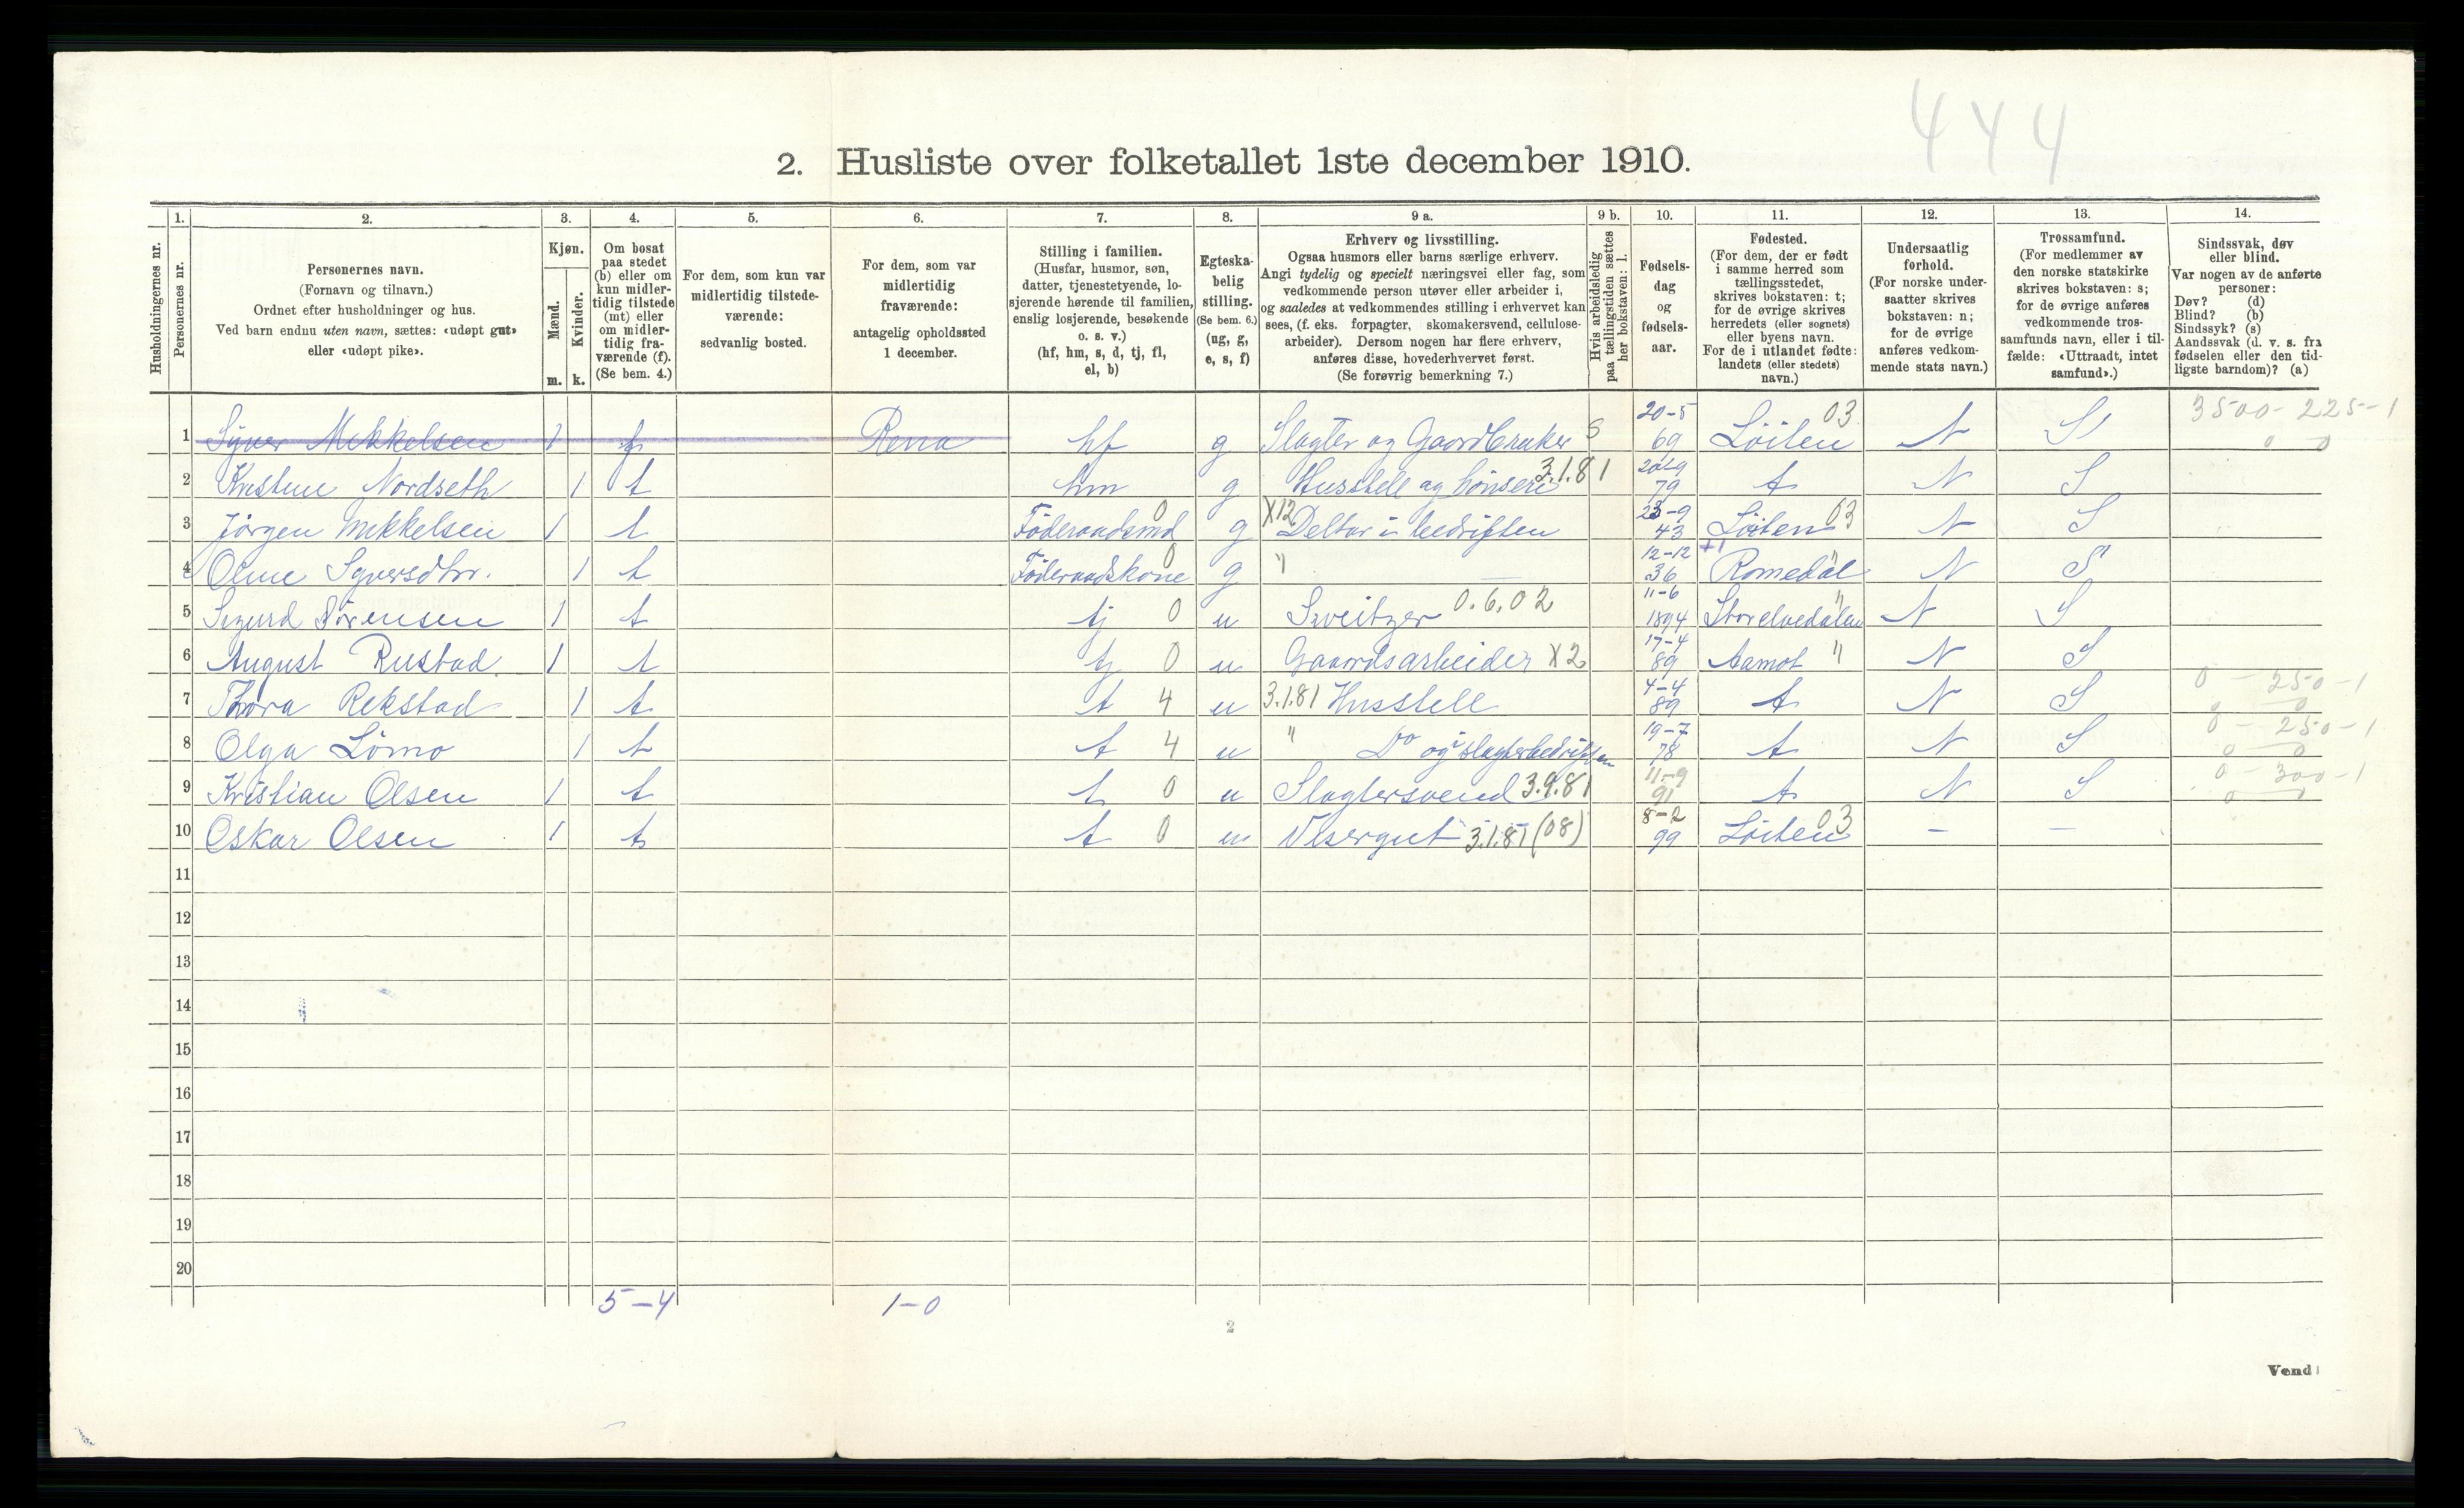 444
2. Husliste over folketallet 1ste december 1910.
Husholdningernes nr.
1. 2. 3. 4. 5. 6. 7. 8. 9 a. 9 b. 10. 11. 12. 13. 14.
Personernes nr.
Personernes navn.
(Fornavn og tilnavn.)
Ordnet efter husholdninger og hus.
Ved barn endnu uten navn, sættes: «udøpt gut»
eller «udøpt pike».
Kjøn.
Mænd.
Kvinder.
m. k.
Om bosat
paa stedet
(b) eller om
kun midler-
tidig tilstede
(mt) eller
om midler-
tidig fra-
værende (f).
(Se bem. 4.)
For dem, som kun var
midlertidig tilstede-
værende:
sedvanlig bosted.
For dem, som var
midlertidig
fraværende:
antagelig opholdssted
1 december.
Stilling i familien.
(Husfar, husmor, søn,
datter, tjenestetyende, lo-
sjerende hørende til familien,
enslig losjerende, besøkende
o. s. v.)
(hf, hm, s, d, tj, fl,
el, b)
Egteska-
belig
stilling.
(Se bem. 6.)
(ug, g,
e, s, f)
Erhverv og livsstilling.
Ogsaa husmors eller barns særlige erhverv.
Angi tydelig og specielt næringsvei eller fag, som
vedkommende person utøver eller arbeider i,
og saaledes at vedkommendes stilling i erhvervet kan
sees, (f. eks. forpagter, skomakersvend, cellulose-
arbeider). Dersom nogen har flere erhverv,
anføres disse, hovederhvervet først.
(Se forøvrig bemerkning 7.)
Hvis arbeidsledig
paa tællingstiden sættes
her bokstaven: l.
Fødsels-
dag
og
fødsels-
aar.
Fødested.
(For dem, der er født
i samme herred som
tællingsstedet,
skrives bokstaven: t;
for de øvrige skrives
herredets (eller sognets)
eller byens navn.
For de i utlandet fødte:
landets (eller stedets)
navn.)
Undersaatlig
forhold.
(For norske under-
saatter skrives
bokstaven: n;
for de øvrige
anføres vedkom-
mende stats navn.)
Trossamfund.
(For medlemmer av
den norske statskirke
skrives bokstaven: s;
for de øvrige anføres
vedkommende tros-
samfunds navn, eller i til-
fælde: «Uttraadt, intet
samfund».)
Sindssvak, døv
eller blind.
Var nogen av de anførte
personer:
Døv? (d)
Blind? (b)
Sindssyk? (s)
Aandssvak (d. v. s. fra
fødselen eller den tid-
ligste barndom)? (a)
1 Syver Mekkelsen 1 f Rena hf g Slagter og Gaardbruker S 20-5 69 Löiten 03 N S 3500-225-1 0 0
2 Kristine Nordseth 1 t hm g Husstell og hönseri 3.1.81 20-9 79 t N S
3 Jörgen Mekkelsen 1 t Föderaadsmd 0 g X12 Deltar i bedriften 23-9 43 Löiten 03 N S
4 Oline Syversdtr. 1 t Föderaadskone 0 g " 12-12 36 Romedal " N S
5 Sigurd Sörensen 1 t tj 0 u Sveitzer 0.6.02 11-6 1894 Storelvedalen " N S
6 August Rustad 1 t tj 0 u Gaardsarbeider X2 17-4 89 Aamot " N S
7 Thora Rekstad 1 t t 4 u 3.1.81 Husstell 4-4 89 t N S 0 - 250-1 0 0
8 Olga Lömo 1 t t 4 u " Do og i slagterbedriften 19-7 78 t N S 0 - 250-1 0 0
9 Kristian Olsen 1 t t 0 u Slagtersvend 3.9.81 11-9 91 t N S 0 - 300-1 0 0
10 Oskar Olsen 1 t t 0 u Visergut 3.1.81 (08) 8-2 99 Löiten 03 - -
11
12
13
14
15
16
17
18
19
20
5-4 1-0
2
Vend